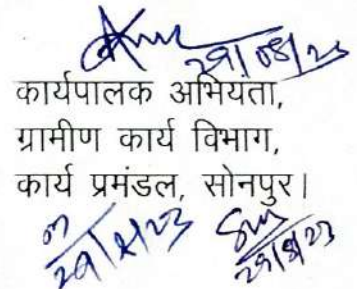 29/08/23
कार्यपालक अभियंता,
ग्रामीण कार्य विभाग,
कार्य प्रमंडल, सोनपुर।
29/8/23 29/8/23